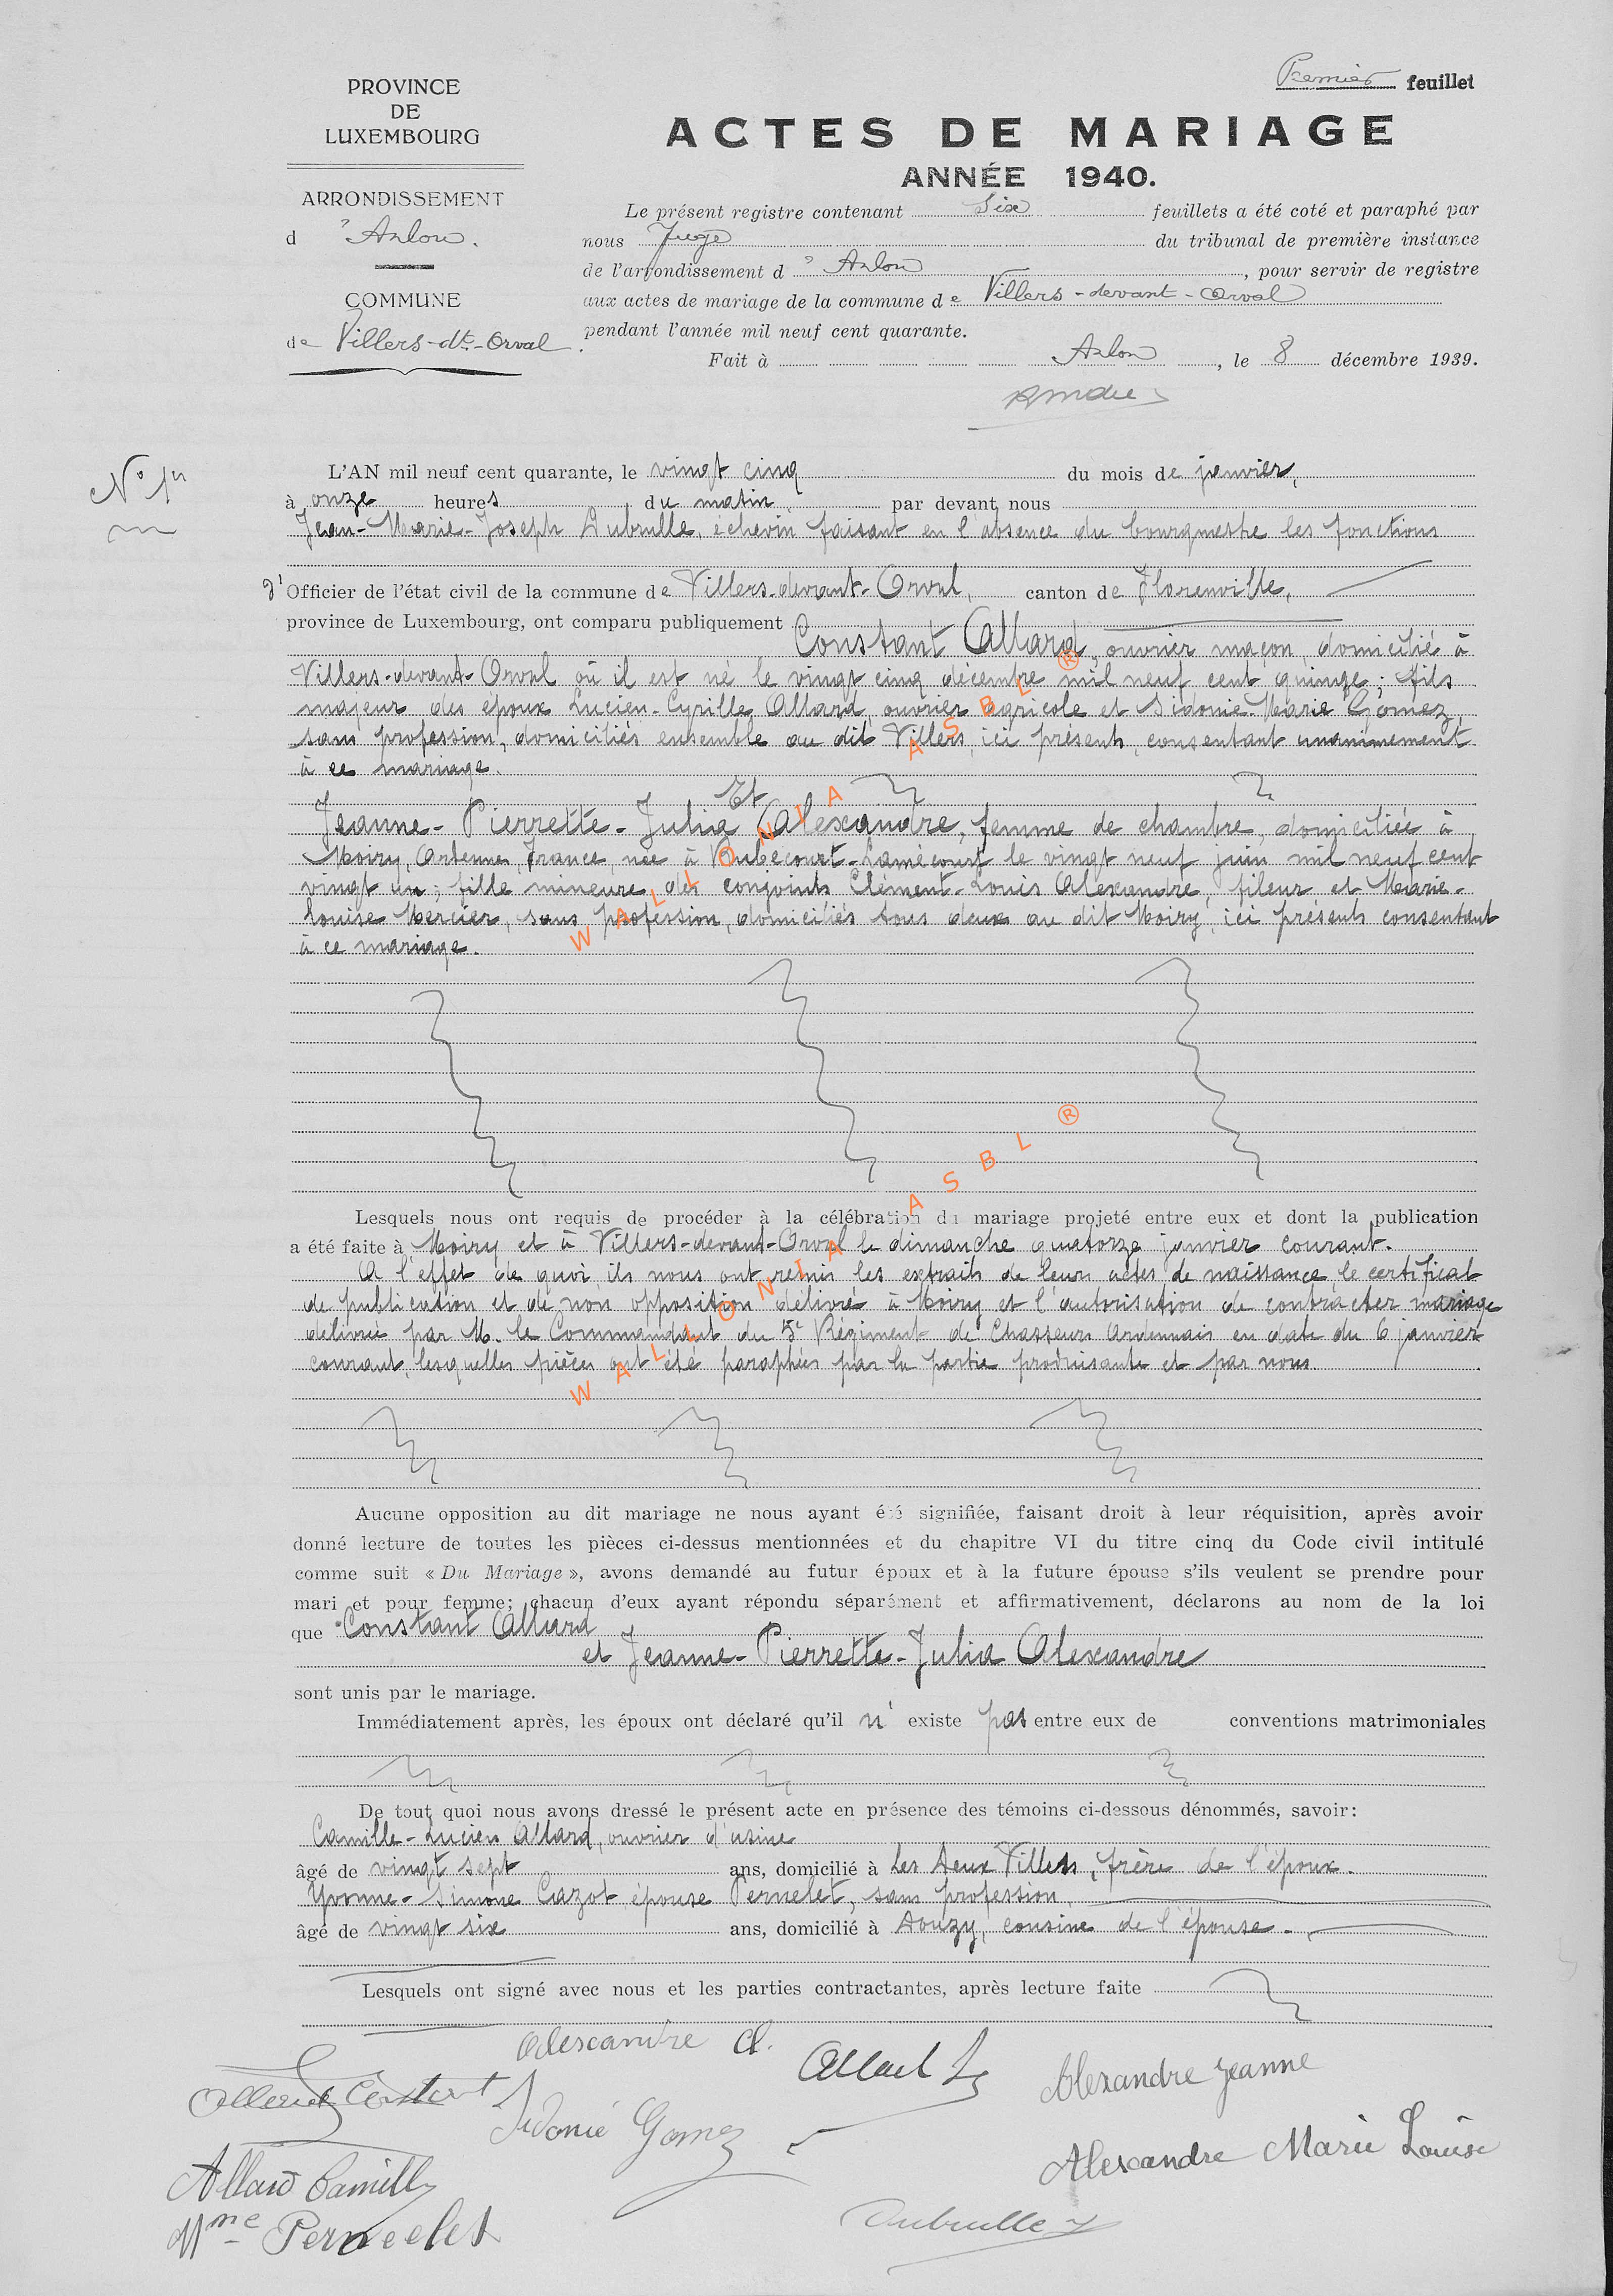 Premier feuillet
PROVINCE
DE
LUXEMBOURG
ARRONDISSEMENT
d'Arlon.
COMMUNE
de Villers-dt-Orval.
ACTES DE MARIAGE
ANNÉE 1940.
Le présent registre contenant Six feuillets a été coté et paraphé par
nous Juge du tribunal de première instance
de l'arrondissement d'Arlon, pour servir de registre
aux actes de mariage de la commune de Villers-devant-Orval
pendant l'année mil neuf cent quarante.
Fait à Arlon, le 8 décembre 1939.
N° 1er
L'AN mil neuf cent quarante, le vingt cinq du mois de janvier,
à onze heures du matin, par devant nous
Jean-Marie-Joseph Dubrulle, échevin faisant en l'absence du bourgmestre les fonctions
d'Officier de l'état civil de la commune de Villers-devant-Orval, canton de Florenville,
province de Luxembourg, ont comparu publiquement
Constant Allard, ouvrier maçon, domicilié à
Villers-devant-Orval où il est né le vingt cinq décembre mil neuf cent quinze; fils
majeur des époux Lucien-Cyrille Allard, ouvrier agricole et Sidonie-Marie Gomez,
sans profession, domiciliés ensemble au dit Villers, ici présents, consentant unanimement
à ce mariage.
Et
Jeanne-Pierrette-Julia Alexandre, femme de chambre, domiciliée à
Moiry, Ardenne, France, née à Rubécourt-Lamécourt le vingt neuf juin mil neuf cent
vingt un; fille mineure des conjoints Clément-Louis Alexandre, fileur et Marie-
Louise Mercier, sans profession, domiciliés tous deux au dit Moiry, ici présents consentant
à ce mariage.
Lesquels nous ont requis de procéder à la célébration du mariage projeté entre eux et dont la publication
a été faite à Moiry et à Villers-devant-Orval le dimanche quatorze janvier courant.
A l'effet de quoi, ils nous ont remis les extraits de leurs actes de naissance, le certificat
de publication et de non opposition délivré à Moiry et l'autorisation de contracter mariage
délivrée par M. le Commandant du 5e Régiment de Chasseurs Ardennais en date du 6 janvier
courant, lesquelles pièces ont été paraphées par la partie produisante et par nous
Aucune opposition au dit mariage ne nous ayant été signifiée, faisant droit à leur réquisition, après avoir
donné lecture de toutes les pièces ci-dessus mentionnées et du chapitre VI du titre cinq du Code civil intitulé
comme suit « Du Mariage », avons demandé au futur époux et à la future épouse s'ils veulent se prendre pour
mari et pour femme; chacun d'eux ayant répondu séparément et affirmativement, déclarons au nom de la loi
que Constant Allard
et Jeanne-Pierrette-Julia Alexandre
sont unis par le mariage.
Immédiatement après, les époux ont déclaré qu'il n'existe pas entre eux de conventions matrimoniales
De tout quoi nous avons dressé le présent acte en présence des témoins ci-dessous dénommés, savoir:
Camille-Lucien Allard, ouvrier d'usine
âgé de vingt sept ans, domicilié à Les Deux Villes, frère de l'époux.
Yvonne-Simone Cazot épouse Pernelet, sans profession,
âgé de vingt six ans, domicilié à Douzy, cousine de l'épouse.
Lesquels ont signé avec nous et les parties contractantes, après lecture faite
Alexandre Cl.
Allard L
Alexandre Jeanne
Allard Constant
Sidonie Gomez
Alexandre Marie Louise
Allard Camille
Mme Pernelet
Dubrulle J
WALLONIA ASBL ®
WALLONIA ASBL ®